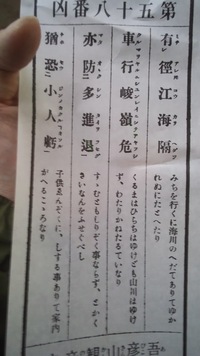 第五十八番凶
有徑江海隔
みちを行くに海川のへだてありてゆか
れぬにたとへたり
車行峻嶺危
くるまはひらちはゆけども山川はゆけ
ず、わたりかねたるていなり
亦防多進退
すゝむともしりぞく事ならず、とかく
さいなんをふせぐべし
猶恐小人虧
子供ゑんぞくに、しする事ありて家内
かへるこゝろなり
吾彦山観音